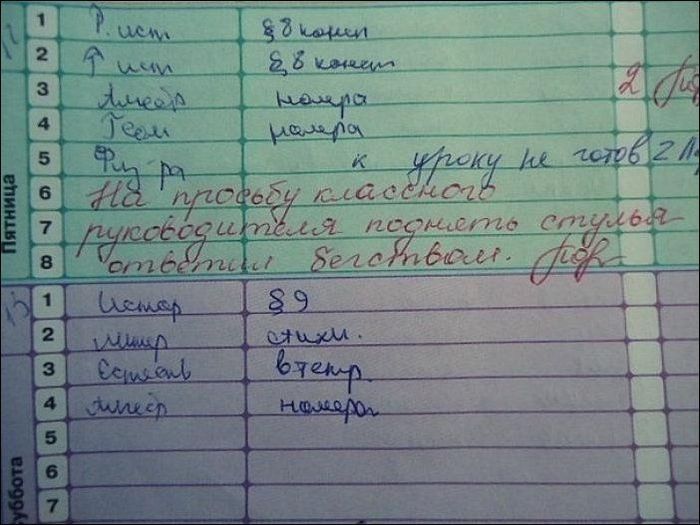 11
Пятница
1 Р. ист § 8 консп
2 Р ист § 8 конст
3 Алгебр номера 2
4 Геом номера
5 Физ-ра к уроку не готов 2
6 На просьбу классного
7 руководителя поднять стулья
8 ответил бегством.
суббота
1 Истор § 9
2 Литер стихи.
3 Естеств в тетр.
4 Алгебр номера
5
6
7